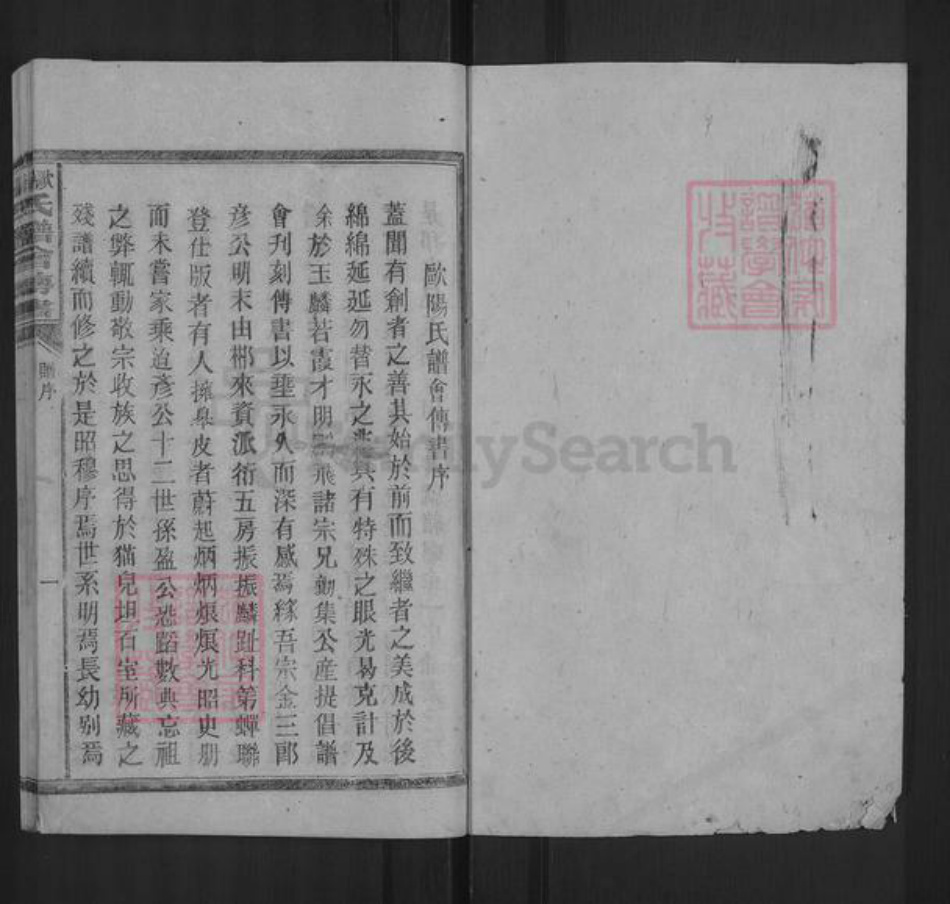 歐陽氏譜會傳書序
蓋聞有創者之善其始於前而致繼者之美成於後
綿綿延延勿替永之非具有特殊之眼光曷克計及
余於玉麟若霞才明飛諸宗兄勷集公產提倡譜
會刋刻傳書以垂永久而深有感焉緣吾宗金三郎
彦公明末由郴來資派衍五房振振麟趾科第蟬聯
登仕版者有人擁臯皮者蔚起炳炳烺烺光昭史册
而未嘗家乘迨彦公十二世孫盈公恐蹈數典忘祖
之弊輒動敬宗收族之思得於猫皃坦石室所藏之
殘譜續而修之於是昭穆序焉世系明焉長幼别焉
歐氏譜會傳書
贈序
一
譜學會
收藏
FamilySearch